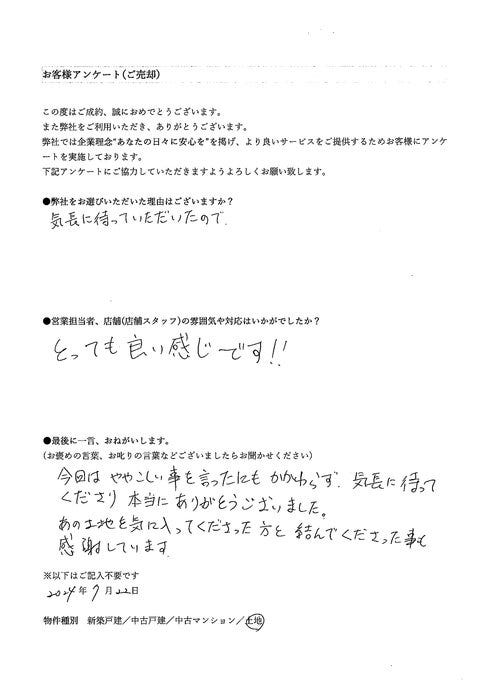 お客様アンケート(ご売却)
この度はご成約、誠におめでとうございます。
また弊社をご利用いただき、ありがとうございます。
弊社では企業理念"あなたの日々に安心を"を掲げ、より良いサービスをご提供するためお客様にアンケ
ートを実施しております。
下記アンケートにご協力していただきますようよろしくお願い致します。
●弊社をお選びいただいた理由はございますか？
気長に待っていただいたので.
●営業担当者、店舗(店舗スタッフ)の雰囲気や対応はいかがでしたか？
とっても良い感じです!!
●最後に一言、おねがいします。
(お褒めの言葉、お叱りの言葉などございましたらお聞かせください)
今回は ややこしい事を言ったにもかかわらず. 気長に待って
くださり 本当にありがとうございました。
あの土地を気に入ってくださった方と 結んでくださった事も
感謝しています.
※以下はご記入不要です
2024年7月22日
物件種別　新築戸建／中古戸建／中古マンション／土地